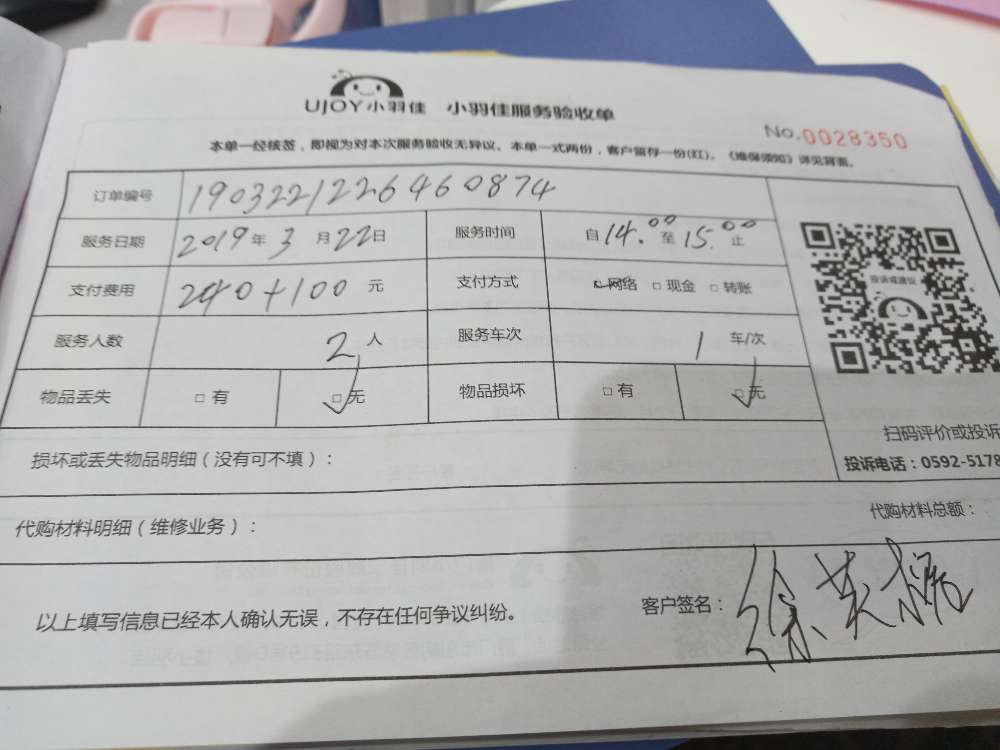 UJOY小羽佳 小羽佳服务验收单
No.0028350
本单一经核签，即视为对本次服务验收无异议。本单一式两份，客户留存一份(红)。《维保须知》详见背面。
订单编号 1903221226460874
服务日期 2019年3月22日 服务时间 自14.00至15.00止
支付费用 240+100元 支付方式 □网络 □现金 □转账
投诉或建议
服务人数 2人 服务车次 1车/次
物品丢失 □有 □无 物品损坏 □有 □无
扫码评价或投诉
损坏或丢失物品明细（没有可不填）：
投诉电话：0592-5178
代购材料明细（维修业务）： 代购材料总额：
以上填写信息已经本人确认无误，不存在任何争议纠纷。 客户签名：徐英